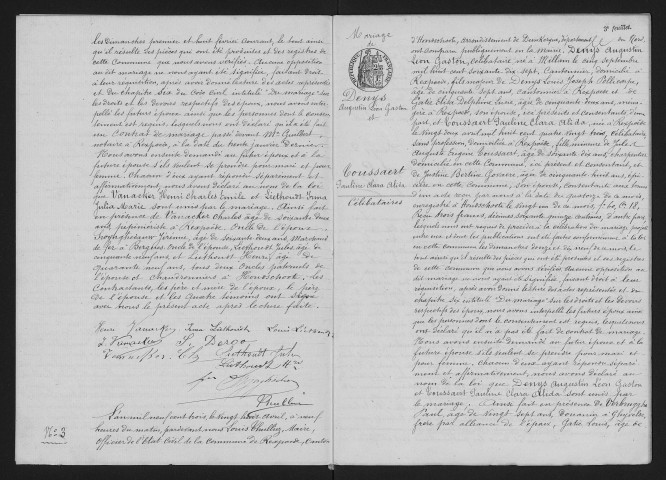 les dimanches premier et huit février courant, le tout ainsi
qu'il résulte des pièces qui ont été produites et des registres de
cette Commune que nous avons vérifiés. Aucune opposition
au dit mariage ne nous ayant été signifiée, faisant droit
à leur réquisition, après avoir donné lecture des actes représentés
et du chapitre Six du Code Civil intitulé "Du mariage" sur
les droits et les devoirs respectifs des époux, nous avons inter-
pellé les futurs époux
un Contrat de mariage passé devant Me
notaire à Rexpoëde, à la date du trente janvier Dernier.
Nous avons ensuite demandé au futur époux et à la
future épouse s'ils veulent se prendre pour mari et pour
femme. Chacun d'eux ayant répondu séparément et
affirmativement, nous avons déclaré au nom de la loi
que Vanacker Henri Charles Emile et Liethoudt Irma
Julia Marie sont unis par le mariage. Ainsi fait
en présence de Vanacker Charles âgé de soixante deux
ans, pépiniériste à Rexpoëde, Oncle de l'époux
âgé de soixante deux ans, Marchand
de fer à Bergues, Oncle de l'épouse, Liethoudt Jules âgé de
cinquante neuf ans et Liethoudt Henri, âgé de
quarante neuf ans, tous deux Oncles paternels
de l'épouse et Charbonniers à Hondschoote, les
Contractants, les père et mère de l'époux, le père
de l'épouse et les quatre témoins ont signé
avec nous le présent acte après lecture faite.
Irma Liethoudt
Liethoudt Jules
Thullier
No 3
L'an mil neuf cent trois, le vingt avril, à neuf
heures du matin, pardevant nous Louis Thullier, Maire,
Officier de l'Etat Civil de la Commune de Rexpoëde, Canton
Mariage
de
Denys
Augustin Léon Gaston
et
Toussaert
Pauline Clara Alida
Célibataires
d'Hondschoote, arrondissement de Dunkerque, département du Nord
ont comparu publiquement en la mairie, Denys Augustin
Léon Gaston, célibataire, né à Millam le cinq septembre
mil huit cent soixante dix sept, Cantonnier, domicilié à
Rexpoëde, fils majeur de Denys Louis Joseph
âgé de cinquante sept ans, Cantonnier, à Rexpoëde et
de Gatie Delphine Lucie, âgée de cinquante deux ans, ména-
gère à Rexpoëde, son épouse, ici présents et consentants, d'une
part, et Toussaert Pauline Clara Alida, née à Rexpoëde
le vingt deux avril mil huit cent quatre vingt trois, célibataire
sans profession, domiciliée à Rexpoëde, fille mineure de Jules
Auguste Eugène Toussaert, âgé de soixante dix ans, charpentier
domicilié en cette Commune, ici présent et consentant, et
de Justine Bertine Goraere, âgée de cinquante huit ans,
domiciliée en cette Commune, son épouse, Consentante
enregistré à Hondschoote le vingt un de ce mois, fo 60, Ce 18,
Reçu trois francs, décimes soixante quinze centimes, d'autre part,
lesquels nous ont requis de procéder à la célébration du mariage projeté
entre eux, et dont les publications ont été faites conformément à la loi
en cette commune les dimanches
tout ainsi qu'il résulte des pièces qui ont été produites et des registres
de cette Commune que nous avons vérifiés. Aucune opposition au
dit mariage ne nous ayant été signifiée, faisant droit à leur
réquisition, après avoir donné lecture des actes représentés et du
chapitre Six intitulé "Du mariage" sur les droits et les devoirs
respectifs des époux, nous avons interpellé les futurs époux ainsi
que les personnes dont le consentement est requis, lesquelles nous
ont déclaré qu'il n'a pas été fait de contrat de mariage.
Nous avons ensuite demandé au futur époux et à la
future épouse s'ils veulent se prendre pour mari et
pour femme, chacun d'eux ayant répondu sépare-
ment et affirmativement, nous avons déclaré au
nom de la loi que Denys Augustin Léon Gaston
et Toussaert Pauline Clara Alida sont unis par
le mariage. Ainsi fait en présence de
Paul, âgé de vingt sept ans, douanier à Ghyvelde,
frère par alliance de l'époux, Gatie Louis, âgé de